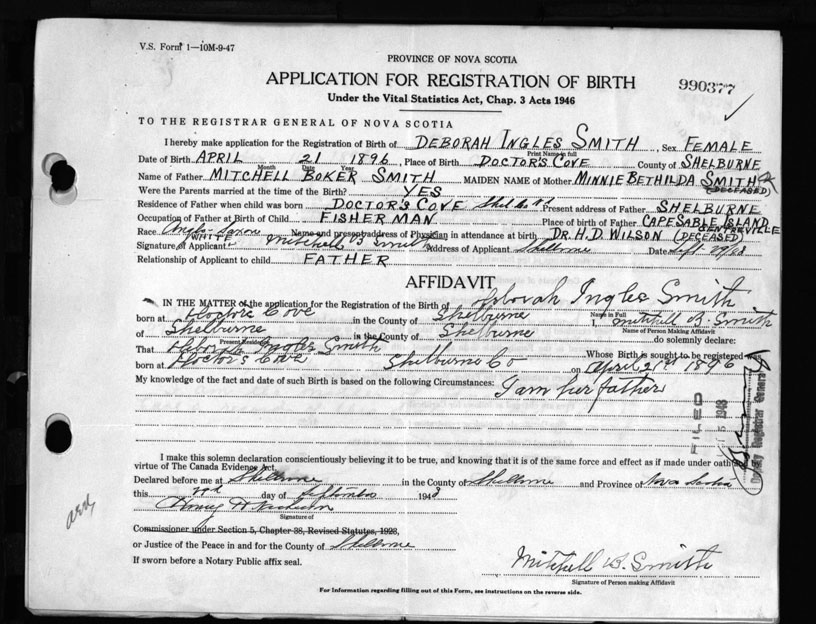 V.S. Form 1—10M-9-47
PROVINCE OF NOVA SCOTIA
APPLICATION FOR REGISTRATION OF BIRTH
990377
Under the Vital Statistics Act, Chap. 3 Acts 1946
TO THE REGISTRAR GENERAL OF NOVA SCOTIA
I hereby make application for the Registration of Birth of DEBORAH INGLES SMITH, Sex FEMALE
Print Name in full
Date of Birth APRIL 21 1896, Place of Birth DOCTOR'S COVE County of SHELBURNE
Month Day Year
Name of Father MITCHELL BOKER SMITH MAIDEN NAME of Mother MINNIE BETHILDA SMITH
(DECEASED)
Were the Parents married at the time of Birth? YES
Residence of Father when child was born DOCTOR'S COVE Present address of Father SHELBURNE
Occupation of Father at Birth of Child FISHERMAN Place of birth of Father CAPE SABLE ISLAND
CENTREVILLE
Race Anglo-Saxon Name and present address of Physician in attendance at birth DR. H.D. WILSON (DECEASED)
WHITE
Signature of Applicant Mitchell B Smith Address of Applicant Shelburne Date Sept
Relationship of Applicant to child FATHER
AFFIDAVIT
IN THE MATTER of the application for the Registration of Birth of Deborah Ingles Smith
Name in Full
born at Doctors Cove in the County of Shelburne I, Mitchell B. Smith
Name of Person Making Affidavit
of Shelburne in the County of Shelburne do solemnly declare:
Present Residence
That Deborah Ingles Smith Whose Birth is sought to be registered was
born at Doctor's Cove Shelburne Co on April 21st 1896
My knowledge of the fact and date of such Birth is based on the following Circumstances: I am her father
FILED
15 1948
Deputy Registrar General
I make this solemn declaration conscientiously believing it to be true, and knowing that it is of the same force and effect as if made under oath
virtue of The Canada Evidence Act.
Declared before me at Shelburne in the County of Shelburne and Province of Nova Scotia
this day of September 1948
Signature of
Commissioner under Section 5, Chapter 38, Revised Statutes, 1923,
or Justice of the Peace in and for the County of Shelburne
If sworn before a Notary Public affix seal.
Mitchell B. Smith
Signature of Person making Affidavit
For Information regarding filling out of this Form, see instructions on the reverse side.